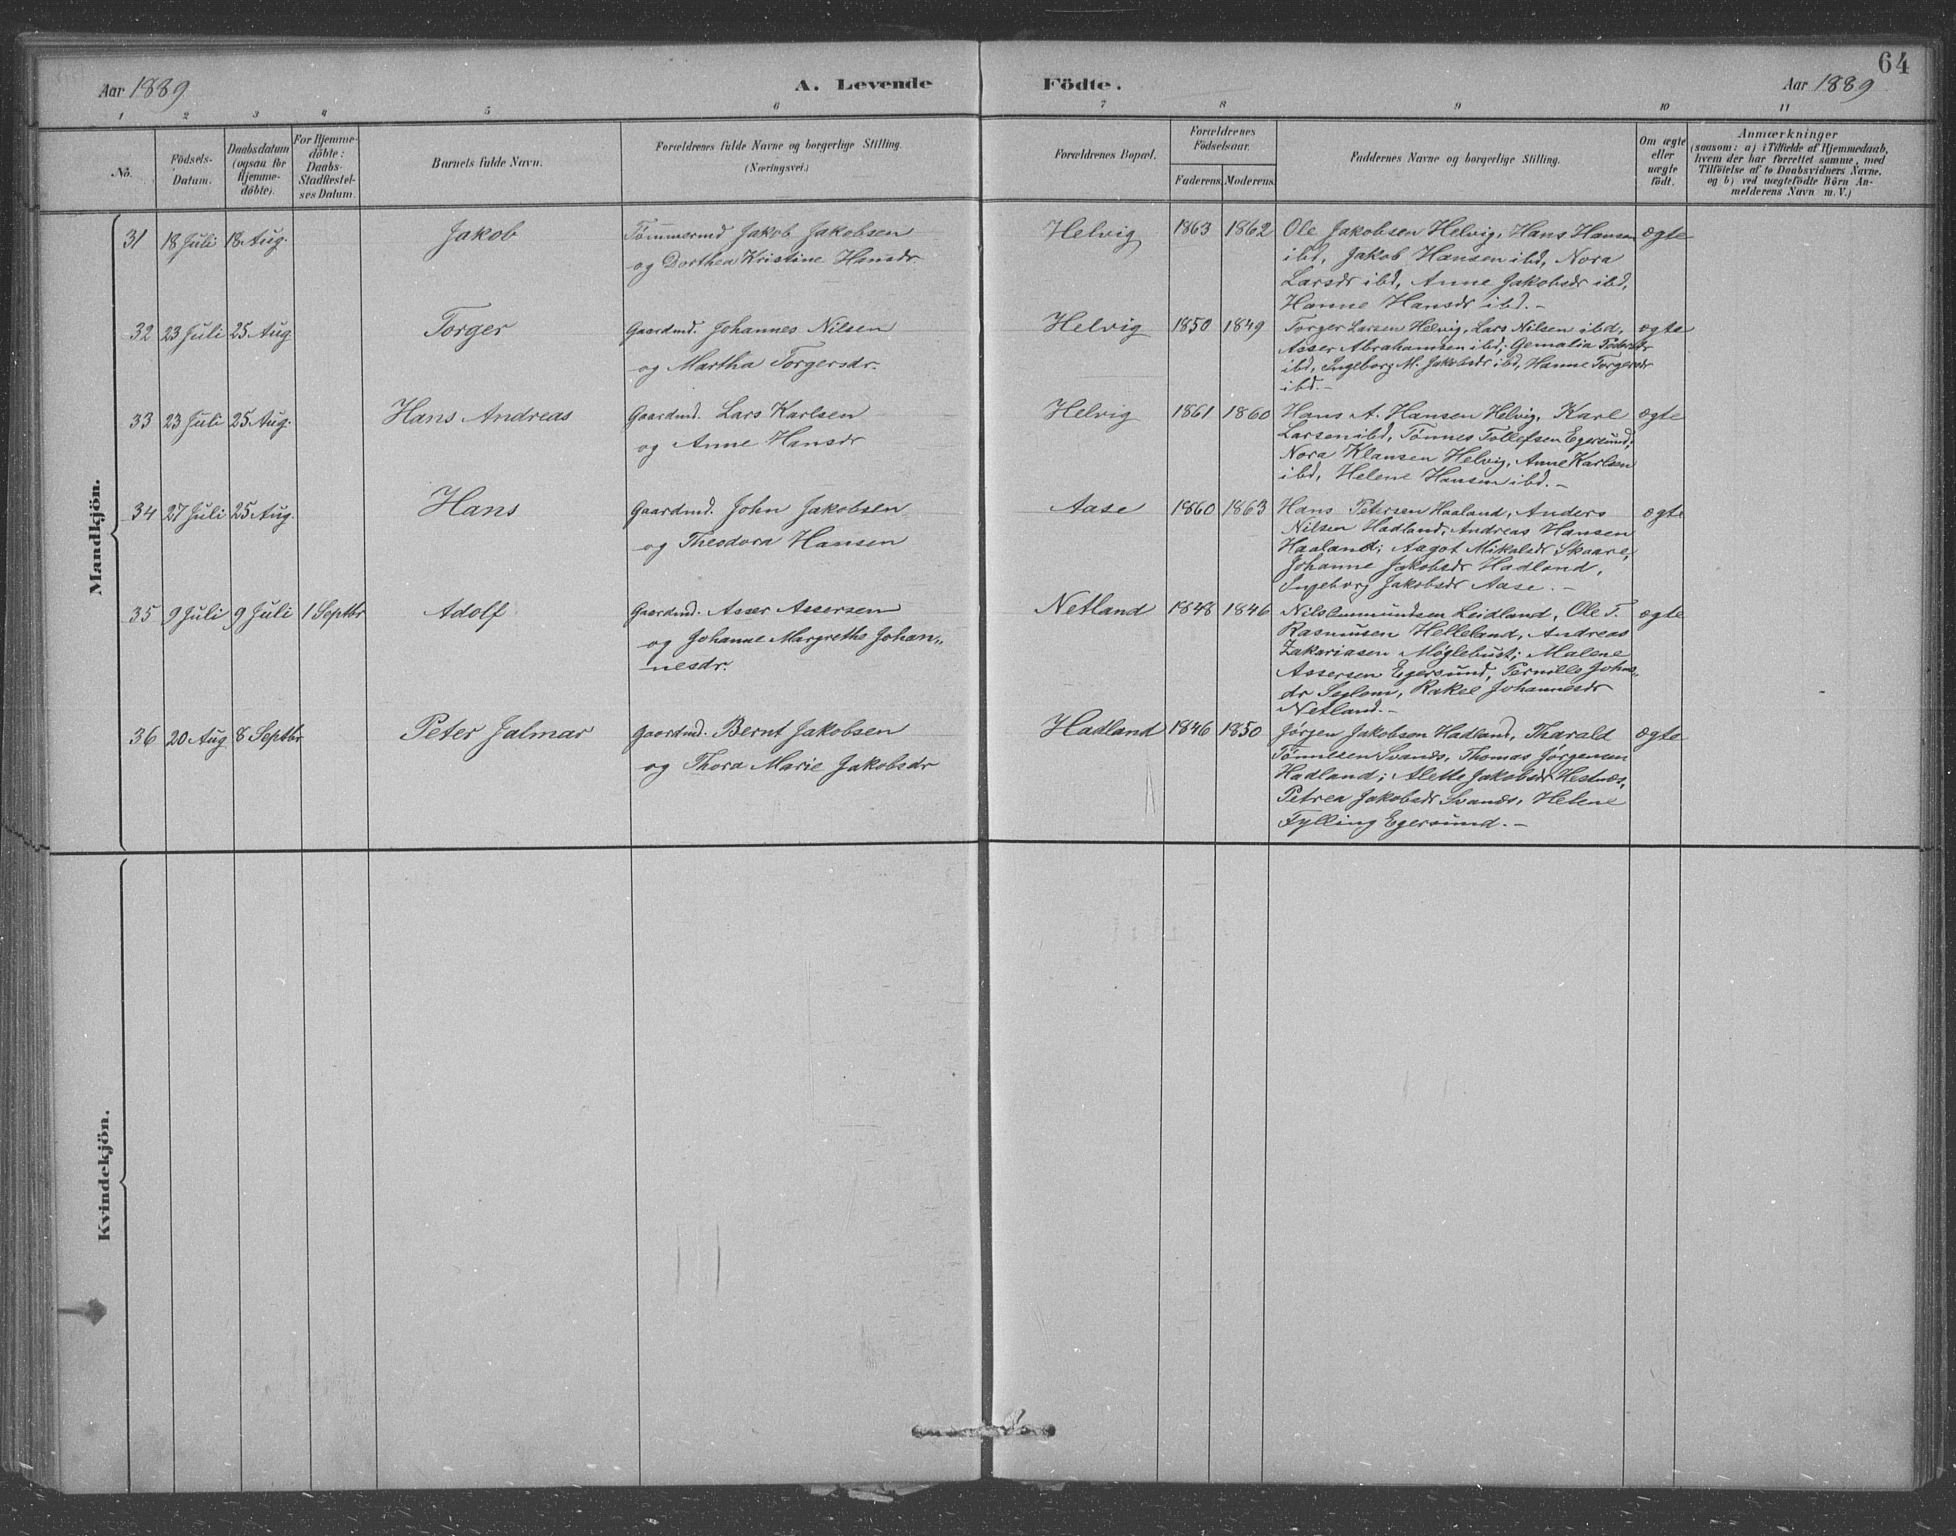 64
Aar 1889 A. Levende Födte. Aar 1889
1 2 3 4 5 6 7 8 9 10 11
No. Födsels-Datum. Daabsdatum (ogsaa for Hjemmedöbte). For Hjemmedöbte: Daabs-Stadfestelses Datum. Barnets fulde Navn. Forældrenes fulde Navne og borgerlige Stilling. (Næringsvei.) Forældrenes Bopæl. Forældrenes Födselsaar. Faderens. Moderens. Faddernes Navne og borgerlige Stilling. Om ægte eller uægte födt. Anmærkninger (saasom: a) i Tilfælde af Hjemmedaab, hvem der har forrettet samme, med Tilföielse af to Daabsvidners Navne. og b) ved uægtefödte Börn Anmelderens Navn m. V.)
Mandkjön.
31 18 Juli 18 Aug. Jakob Tømmermd Jakob Jakobsen Helvig 1863 1862 Ole Jakobsen Helvig, Hans Hansen ægte
og Dorthea Kristine Hansdr. ibd, Jakob Hansen ibd, Nora
Larsdr ibd, Anne Jakobsdr ibd,
Hanne Hansdr ibd.-
32 23 Juli 25 Aug. Torger Gaardmd. Johannes Nilsen Helvig 1850 1849 Torger Larsen Helvig, Lars Nilsen ibd, ægte
Asser Abrahamsen ibd; Gemalia Pedersdr
og Martha Torgersdr. ibd, Ingeborg M. Jakobsdr ibd, Hanne Torgersdr
ibd.-
33 23 Juli 25 Aug. Hans Andreas Gaardmd. Lars Karlsen Helvig 1861 1860 Hans A. Hansen Helvig, Karl ægte
og Anne Hansdr Larsen ibd, Tønnes Tollefsen Egersund;
Nora Klausen Helvig, Anne Karlsen
ibd, Helene Hansen ibd.-
34 27 Juli 25 Aug. Hans Gaardmd. John Jakobsen Aase 1860 1863 Hans Petersen Haaland, Anders ægte
og Theodora Hansen Nilsen Hadland, Andreas Hansen
Haaland; Aagot Mikalsdr Skaare,
Johanne Jakobsdr Hadland,
Ingeborg Jakobsdr Aase.-
35 9 Juli 9 Juli 1 Septbr Adolf Gaardmd. Asser Assersen Netland 1848 1846 Nils Leidland, Ole T. ægte
og Johanne Margrethe Johan- Rasmusen Helleland, Andreas
nesdr. Zakariasen Møglebust; Malene
Assersen Egersund, Pernille Johns-
dr Seglem, Rakel Johannesdr
Netland.-
36 20 Aug 8 Septbr Peter Jalmar Gaardmd. Bernt Jakobsen Hadland 1846 1850 Jørgen Jakobsen Hadland, Tharald ægte
og Thora Marie Jakobsdr Tønnesen Svands, Thomas Jørgensen
Hadland; Alette Jakobsdr Hestnes,
Petrea Jakobsdr Svands, Helene
Fylling Egersund.-
Kvindekjön.